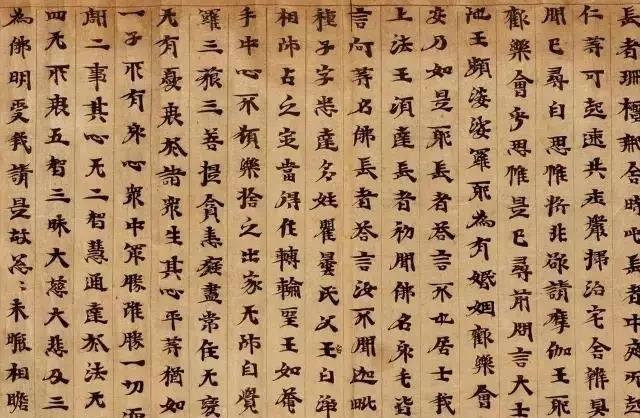 長者珊檀那舍時此長者中夜
仁等可起速共莊嚴掃治宅舍辦具
聞已尋自思惟將非欲請摩伽王
歡樂會乎思惟是已尋前問言大士
池王頻婆娑羅耶為有婚姻歡樂會
安乃如是耶長者答言不也居士我
上法王須達長者初聞佛名身毛皆
言何等名佛長者答言汝不聞迦毗
種子字悉達多姓瞿曇氏父王白淨
相師占之定當得作轉輪聖王如菴
手中心不願樂捨之出家无師自覺
羅三藐三菩提貪恚癡盡常住无變
无有憂畏於諸眾生其心平等猶如
一子所有身心眾中最勝雖勝一切而
二事其心无二智慧通達於法无
四无所畏五智三昧大慈大悲及三
為佛明受我請是故怱〻未暇相瞻